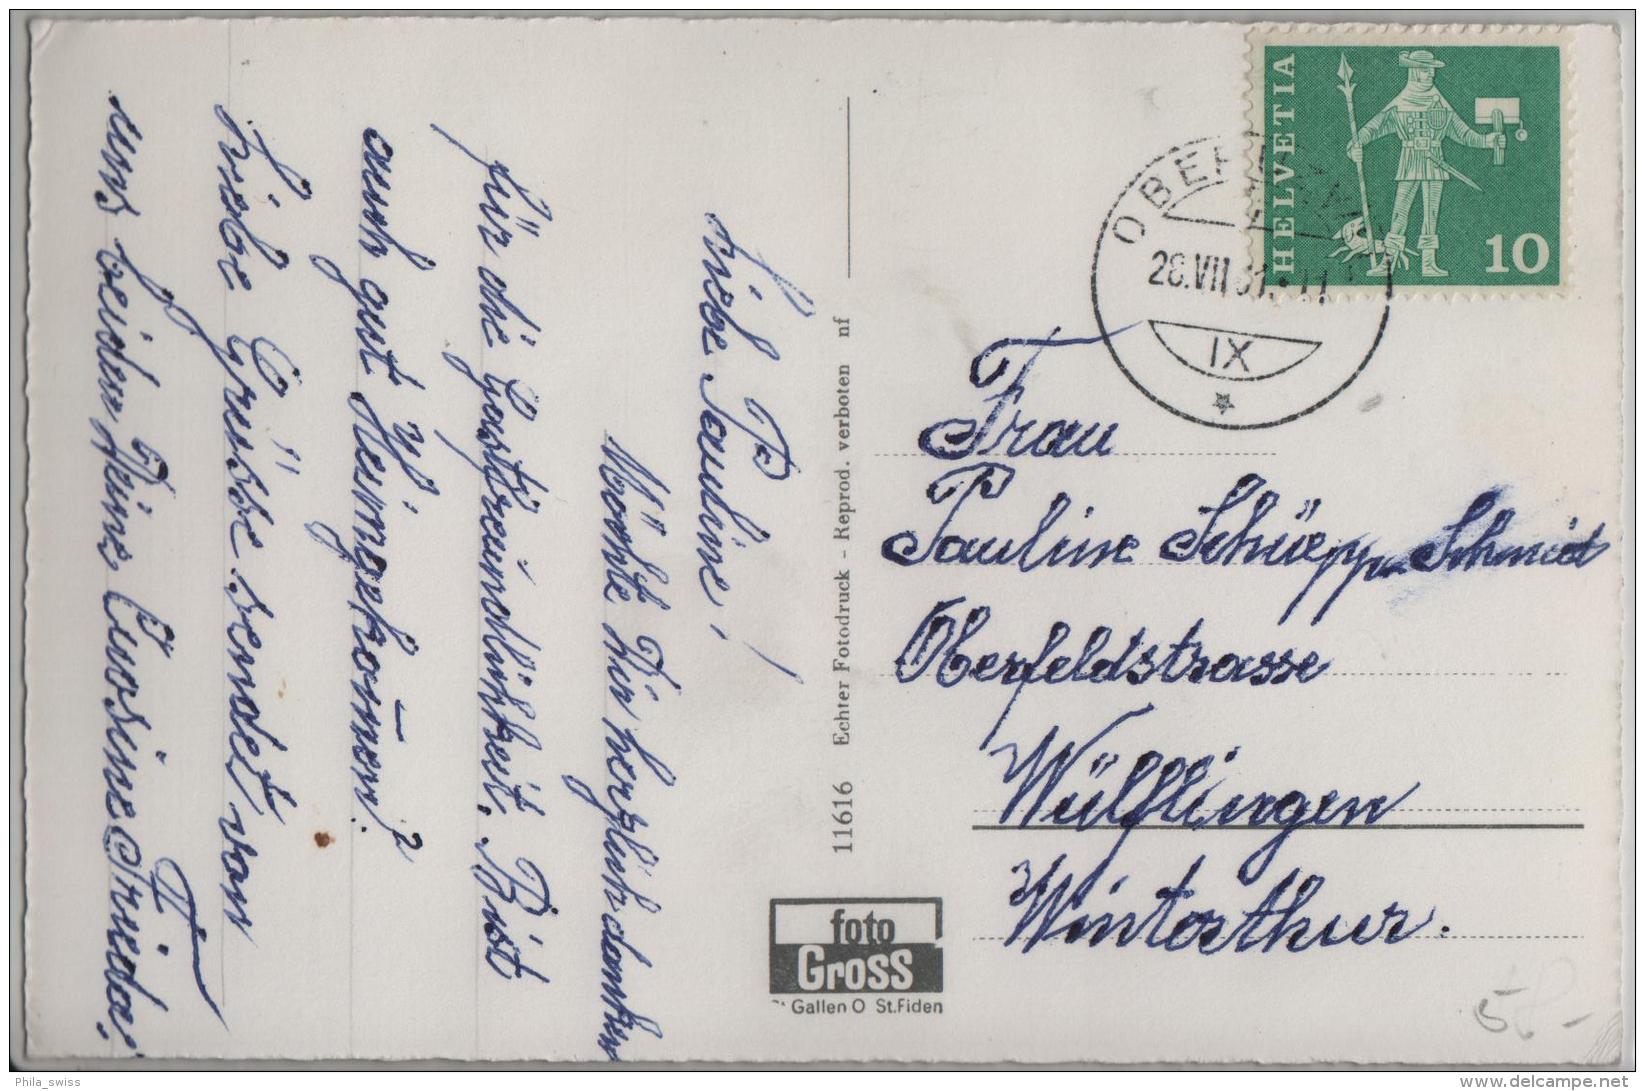 Liebe Pauline!
Möchte Dir herzlich danken
für die Gastfreundlichkeit. Bist
auch gut Heimgekom̄en?
Liebe Grüsse sendet von
uns beiden Deine Cuosine Frieda.
11616 Echter Fotodruck - Reprod. verboten nf
foto
Gross
St Gallen O St.Fiden
HELVETIA
10
28.VII 61.-11
IX
Frau
Pauline Schüepp-Schmid
Oberfeldstrasse
Wülflingen
Winterthur.
Phila_swiss
delcampe.net